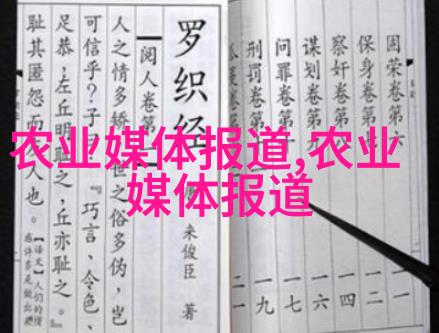 农业媒体报道,农业
媒体报道
固荣卷第六
保身卷第
察奸卷第
谋划卷第
问罪卷第
刑罚卷第
罗织经
来俊臣 著
阅人卷第
人之情多矫 世之俗多伪,岂
可信乎?子 『巧言、令色、
足恭,左丘明耻之,丘亦耻之。』
耻其匿怨而 人也。
【译文】人们的情
感许多是做出来